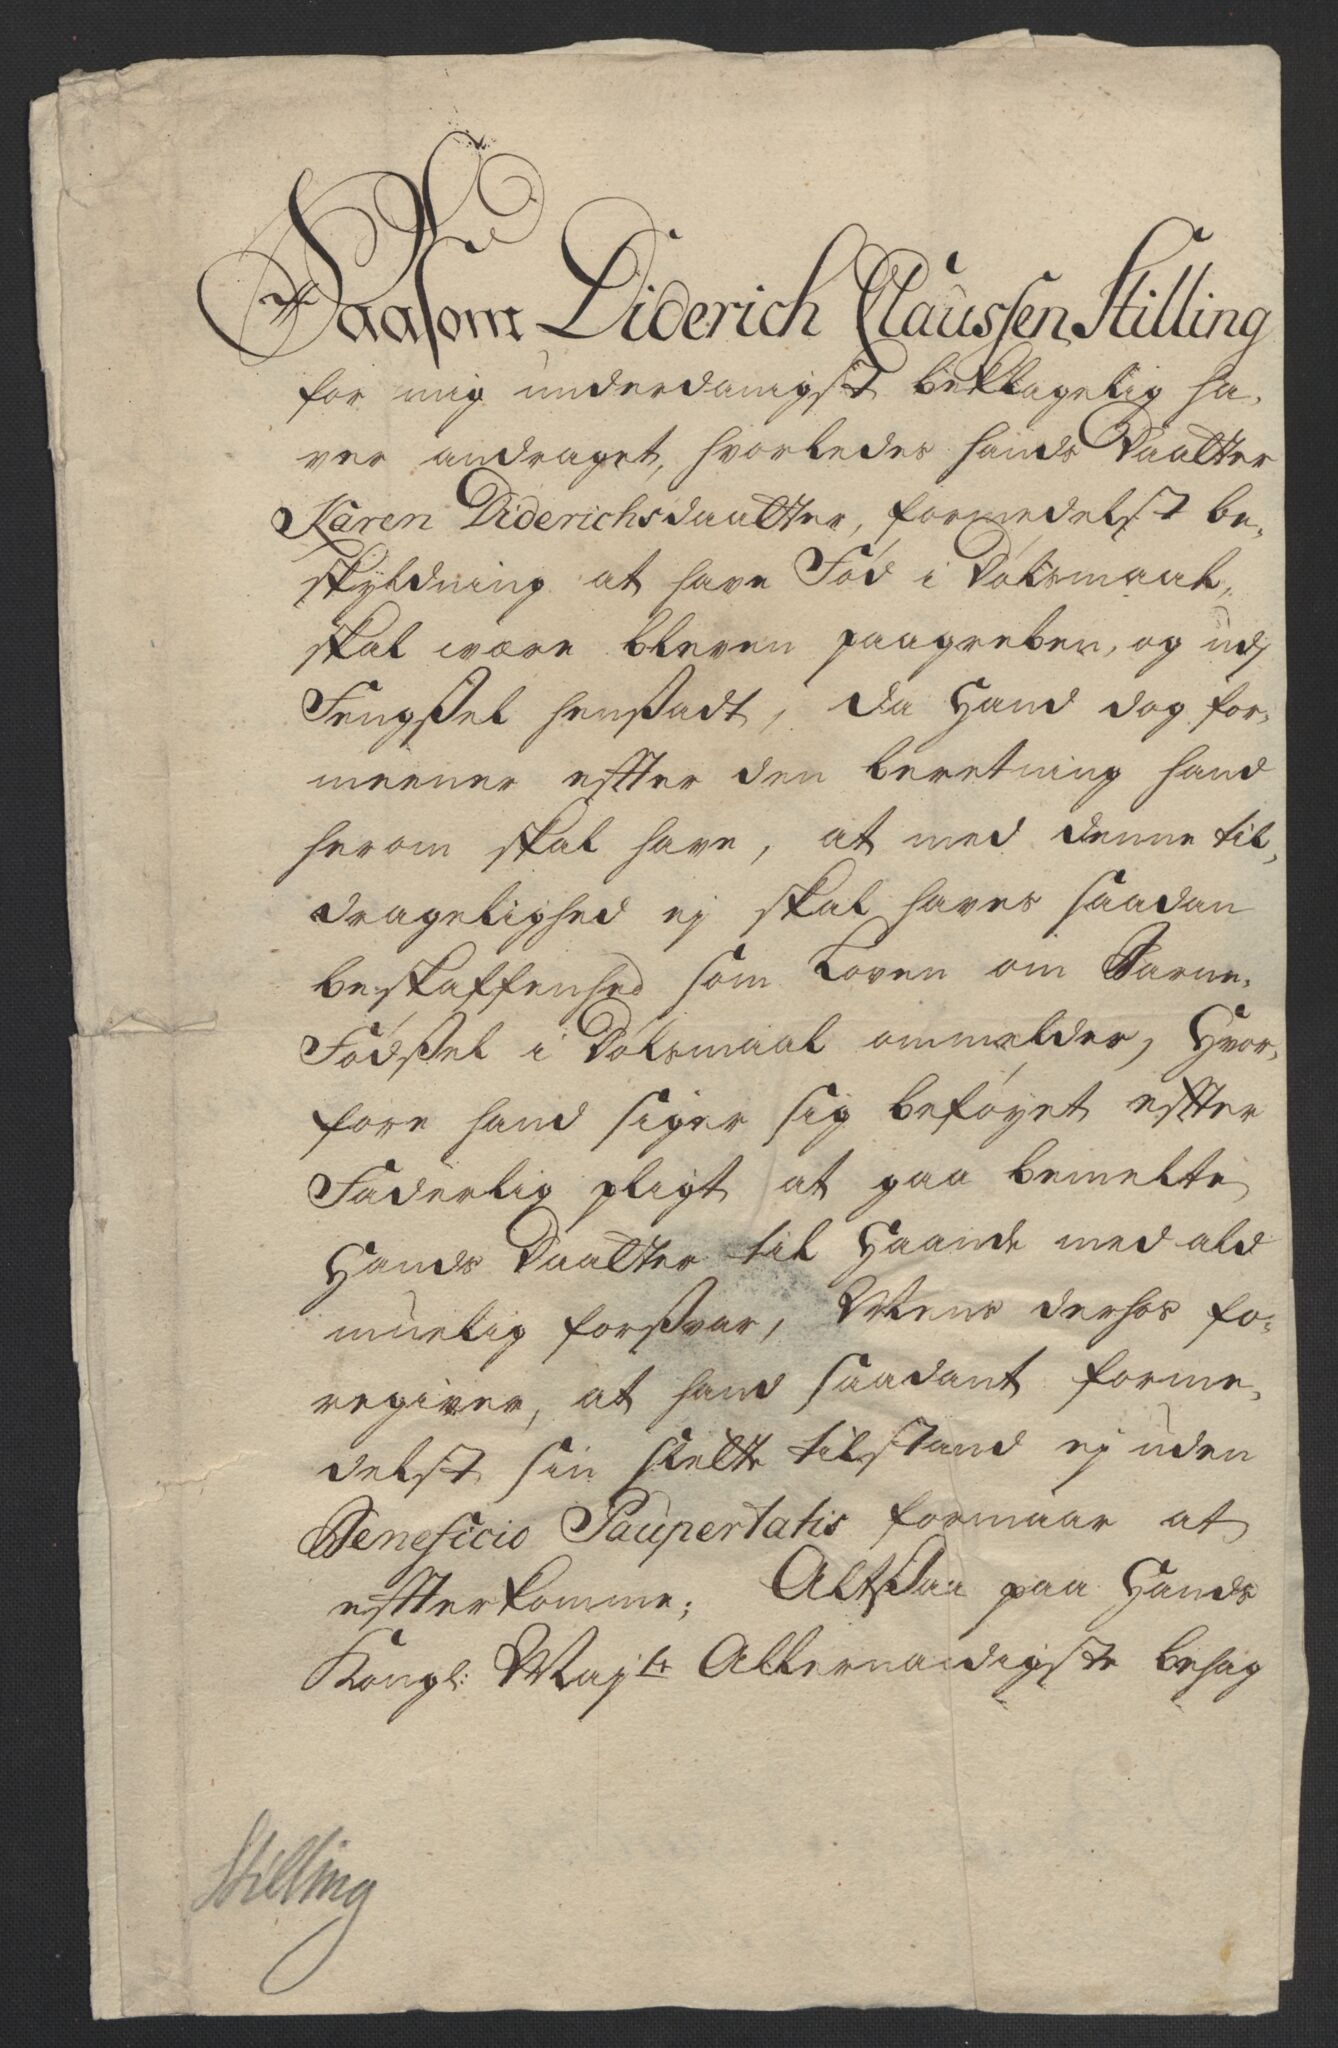 Saasom Diderich Claussen Stilling
for mig underdanigst beklagelig ha-
ver andraget, hvorledes hands Daatter
Karen Diderichsdaatter, formedelst be-
skyldning at have Fød i Dølsmaal,
skal være bleven paagreben, og udj
Fengssel henssadt, da Hand dog for-
meener effter den beretning hand
herom skal have, at med denne til-
dragelighed ej skal haves saadan
beskaffenhed som Loven om Barne-
Fødssel i Dølsmaal ommelder, Hvor-
fore hand siger sig beføyet effter
Faderlig pligt at gaa bemelte
Hands Daatter til Haande med ald
muelig forssvar, Mens derhos fo-
regiver, at hand saadant forme-
delst sin slette tilstand ej uden
Beneficio Paupertatis formaar at
effterkomme; Altssaa paa Hands
Kongl: Majts Allernaadigste behag
Stilling